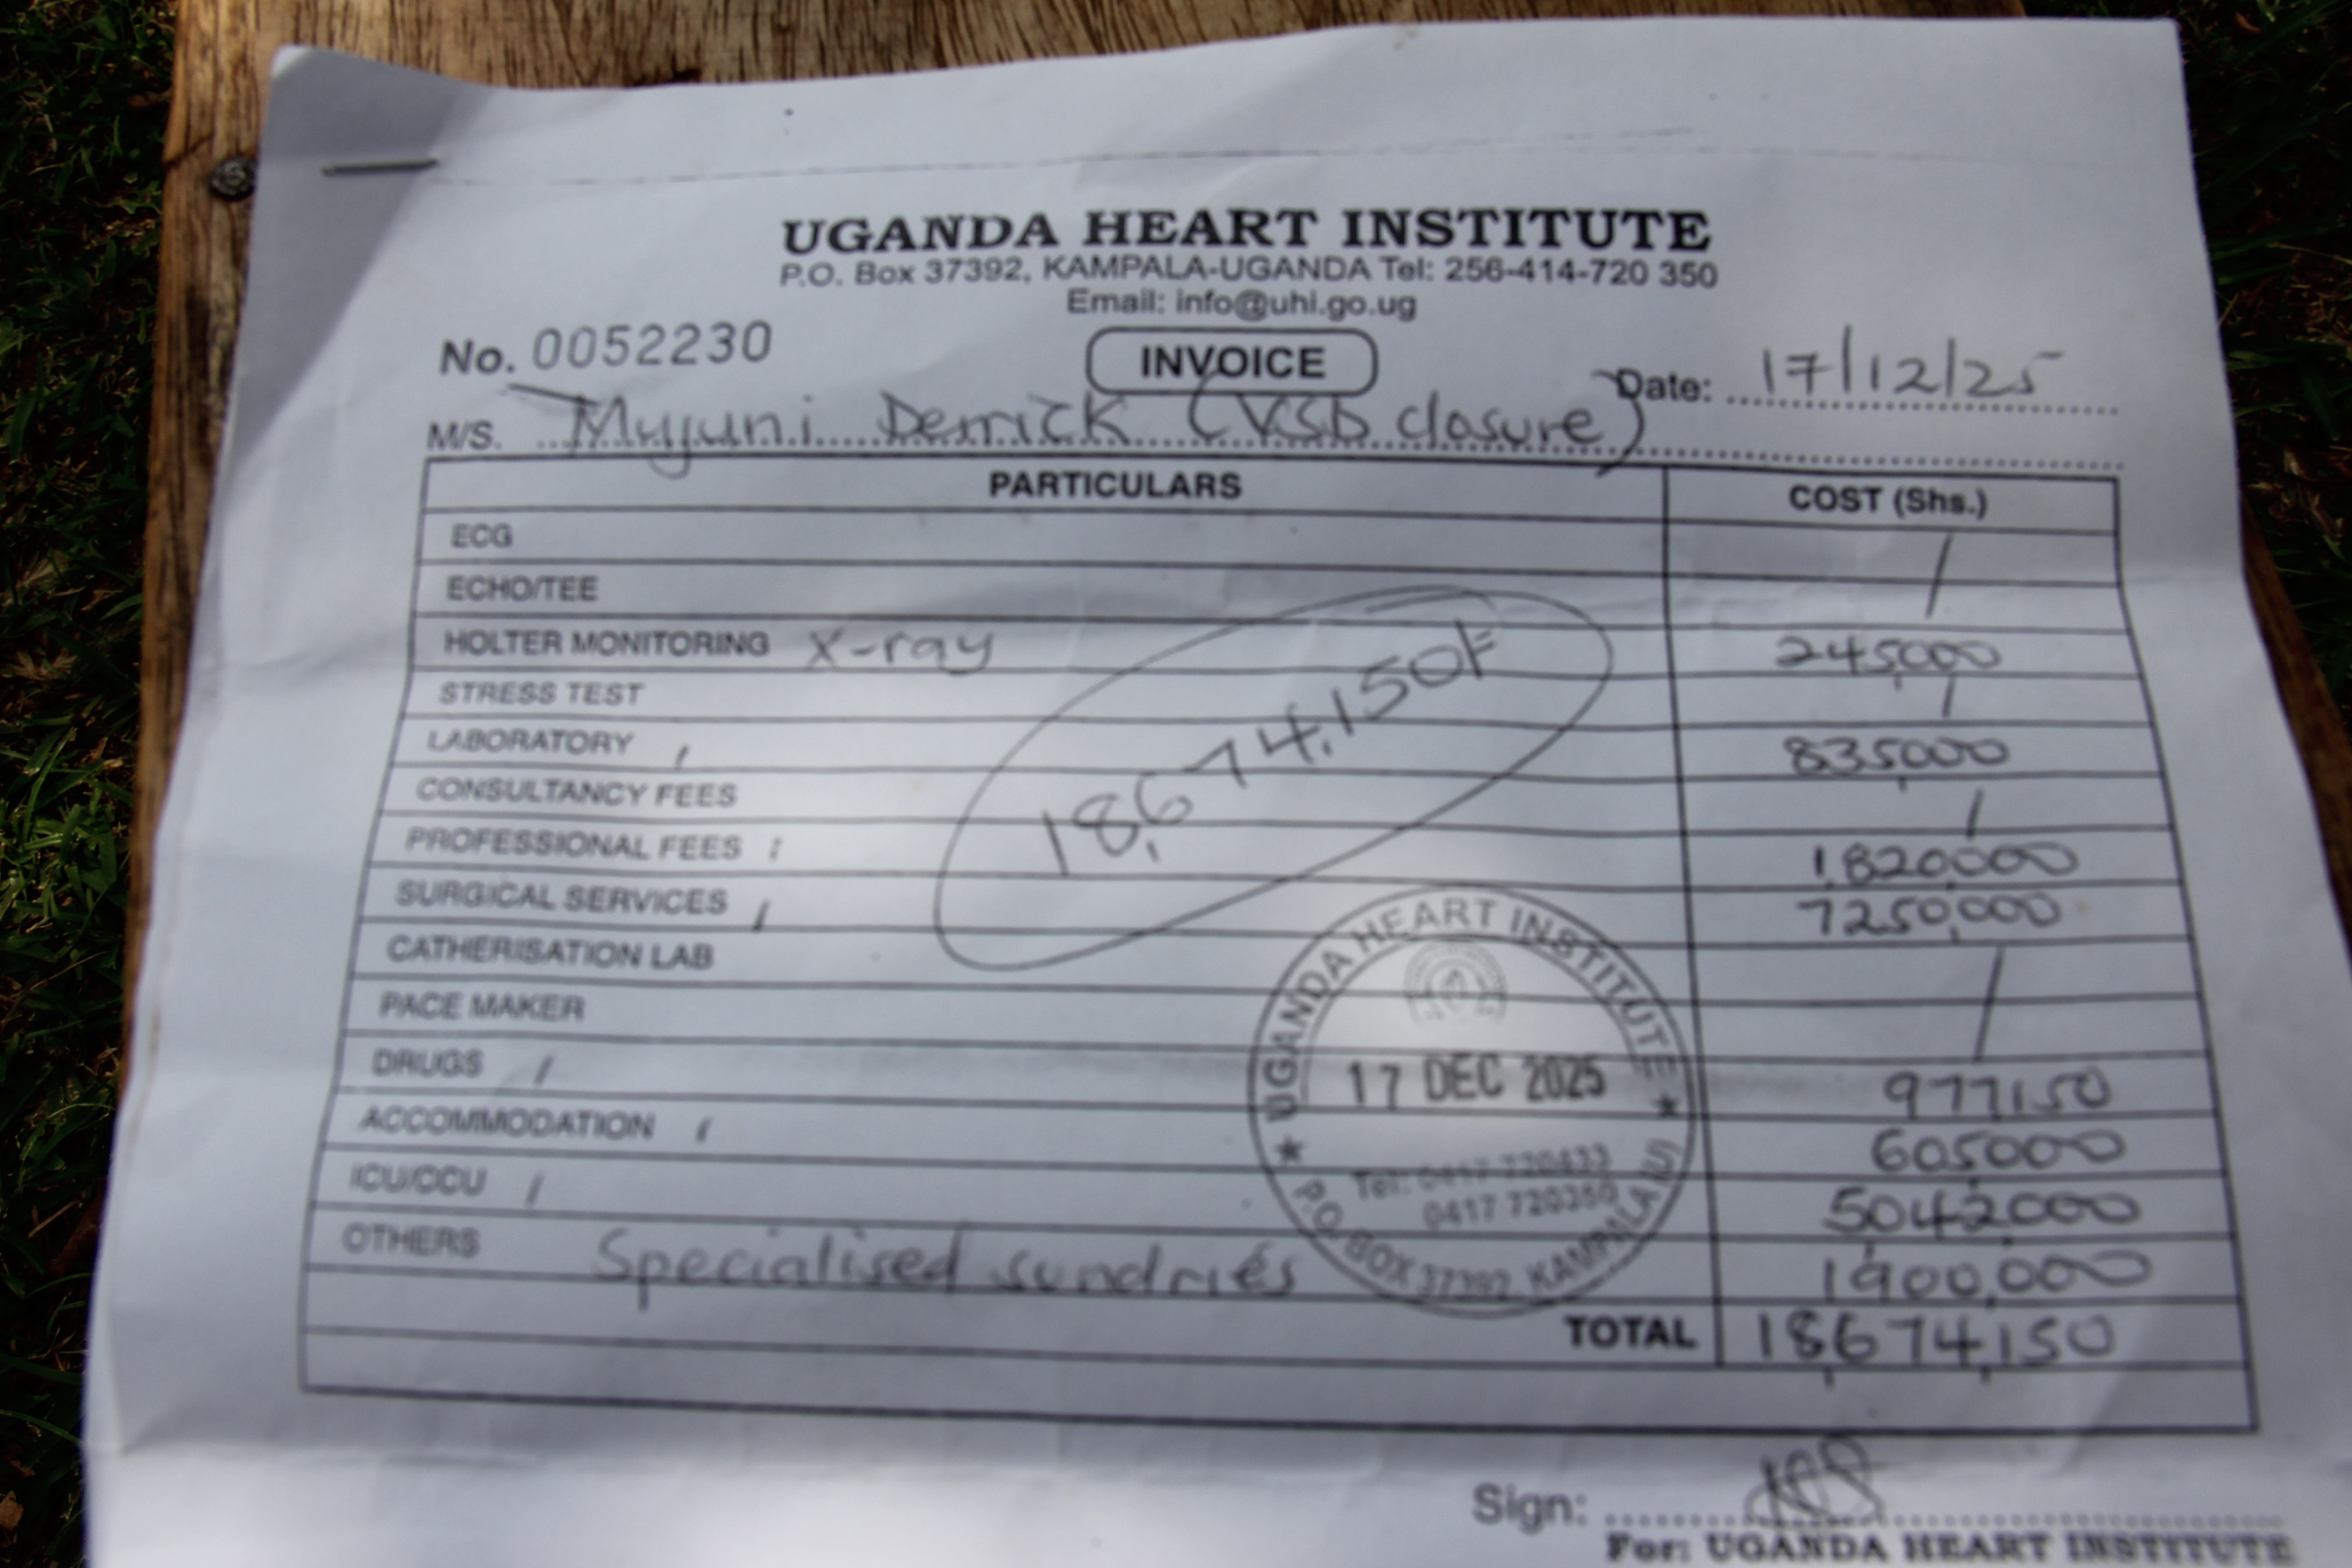 UGANDA HEART INSTITUTE
P.O. Box 37392, KAMPALA-UGANDA Tel: 256-414-720 350
Email: info@uhi.go.ug
No. 0052230
INVOICE
Date: 17/12/25
M/S. Myjuni Derrick (VSD closure)
PARTICULARS COST (Shs.)
ECG
ECHO/TEE
HOLTER MONITORING X-ray 245,000
STRESS TEST
LABORATORY 835,000
CONSULTANCY FEES
PROFESSIONAL FEES 1,820,000
SURGICAL SERVICES 7250,000
CATHERISATION LAB
PACE MAKER
DRUGS 977,150
ACCOMMODATION 605,000
ICU/CCU 5,042,000
OTHERS Specialised sundries 1900,000
TOTAL 18,674,150
18,674,150/=
UGANDA HEART INSTITUTE
17 DEC 2025
Tel: 0417 720433
0417 720350
P.O. BOX 37392, KAMPALA (U)
Sign:
For: UGANDA HEART INSTITUTE